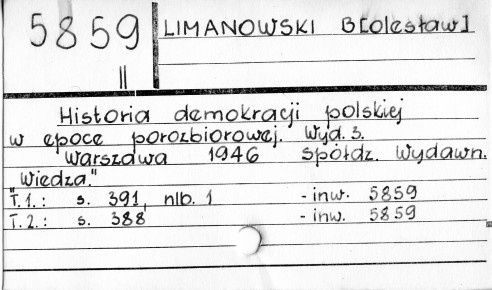 5859
II
LIMANOWSKI B[olesław]
Historia demokracji polskiej
w epoce porozbiorowej. Wyd. 3.
Warszawa 1946 Spółdz. Wydawn.
"Wiedza."
T. 1.: s. 391, nlb. 1 - inw. 5859
T. 2.: s. 388 - inw. 5859